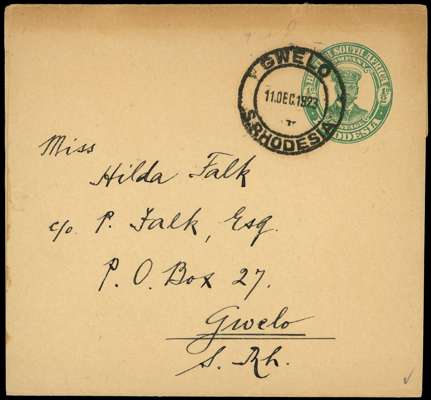 GWELO
11.DEC.1923
S.RHODESIA
BRITISH SOUTH AFRICA
COMPANY
½d
½d
POSTAGE
RHODESIA
Miss
Hilda Falk
c/o. P. Falk, Esq.
P. O. Box 27.
Gwelo
S. Rh.